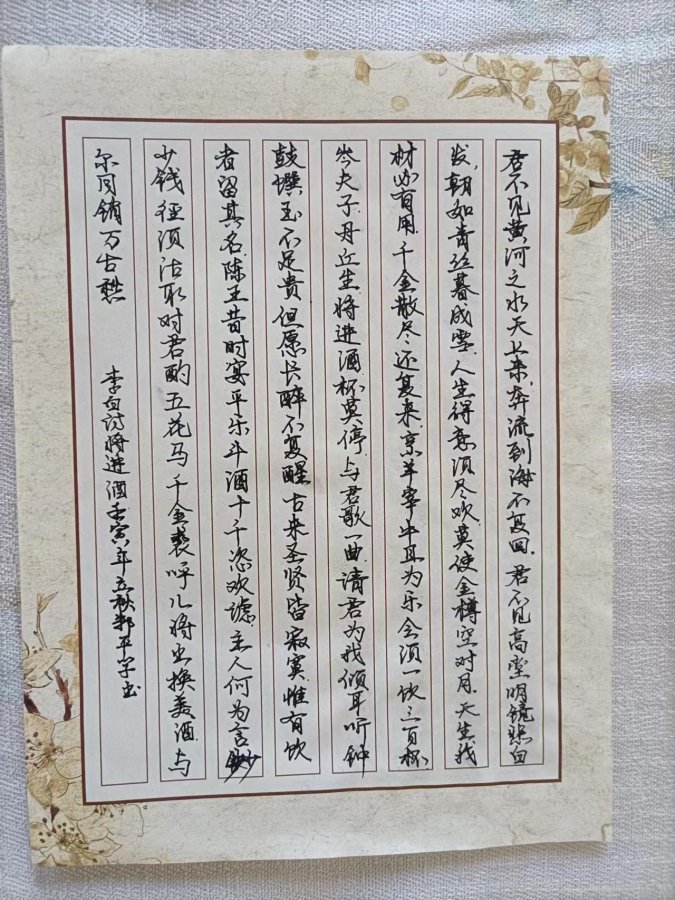 君不见黄河之水天上来，奔流到海不复回.君不见高堂明镜悲白
发，朝如青丝暮成雪.人生得意须尽欢.莫使金樽空对月.天生我
材必有用.千金散尽还复来.烹羊宰牛且为乐会须一饮三百杯.
岑夫子.丹丘生将进酒杯莫停.与君歌一曲.请君为我倾耳听钟
鼓馔玉不足贵但愿长醉不复醒.古来圣贤皆寂寞.惟有饮
者留其名.陈王昔时宴平乐斗酒十千恣欢谑.主人何为言
少钱径须沽取对君酌五花马千金裘呼儿将出换美酒.与
尔同销万古愁
李白诗将进酒壬寅年立秋